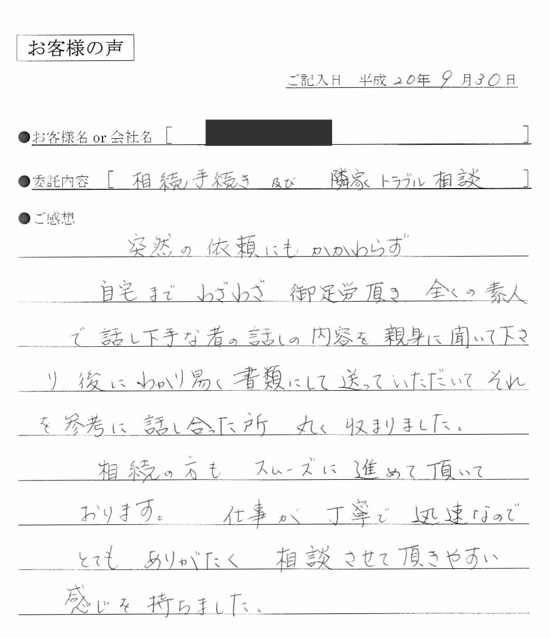 お客様の声
ご記入日 平成20年9月30日
●お客様名 or 会社名 [ ]
●委託内容 [ 相続手続き 及び 隣家トラブル相談 ]
●ご感想
突然の依頼にもかかわらず
自宅まで わざわざ 御足労頂き 全くの素人
で話し下手な者の話しの内容を親身に聞いて下さ
り 後にわかり易く書類にして送っていただいて それ
を参考に話し合った所 丸く収まりました。
相続の方も スムーズに進めて頂いて
おります。 仕事が丁寧で迅速なので
とても ありがたく 相談させて頂きやすい
感じを持ちました。